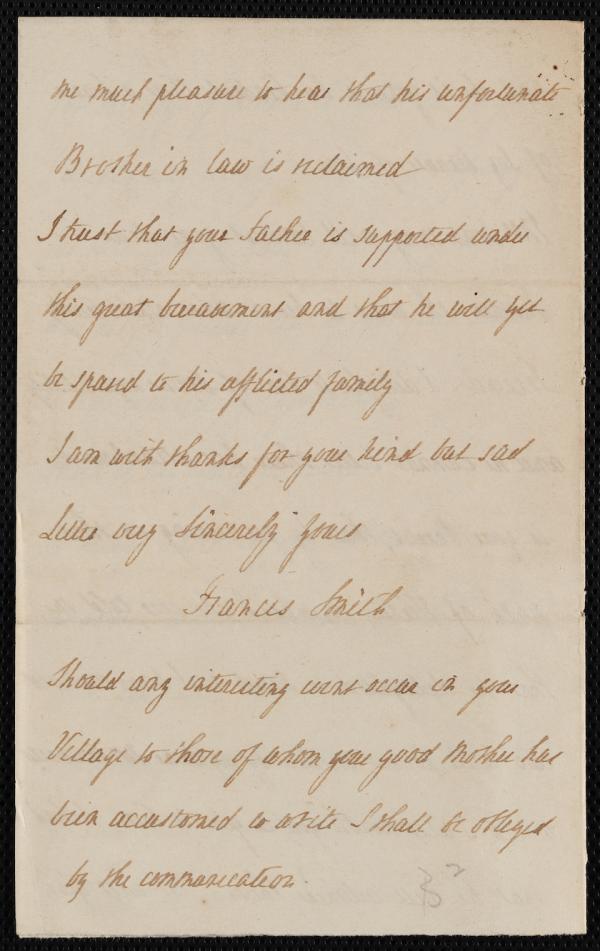 me much pleasure to hear that his unfortunate
Brother in law is reclaimed
I trust that your Father is supported under
this great bereavement and that he will yet
be spared to his afflicted family
I am with thanks for your kind but sad
Letter very Sincerely yours
Frances Smith
Should any interesting event occur in your
Village to those of whom your good Mother has
been accustomed to write I shall be obliged
by the communication.